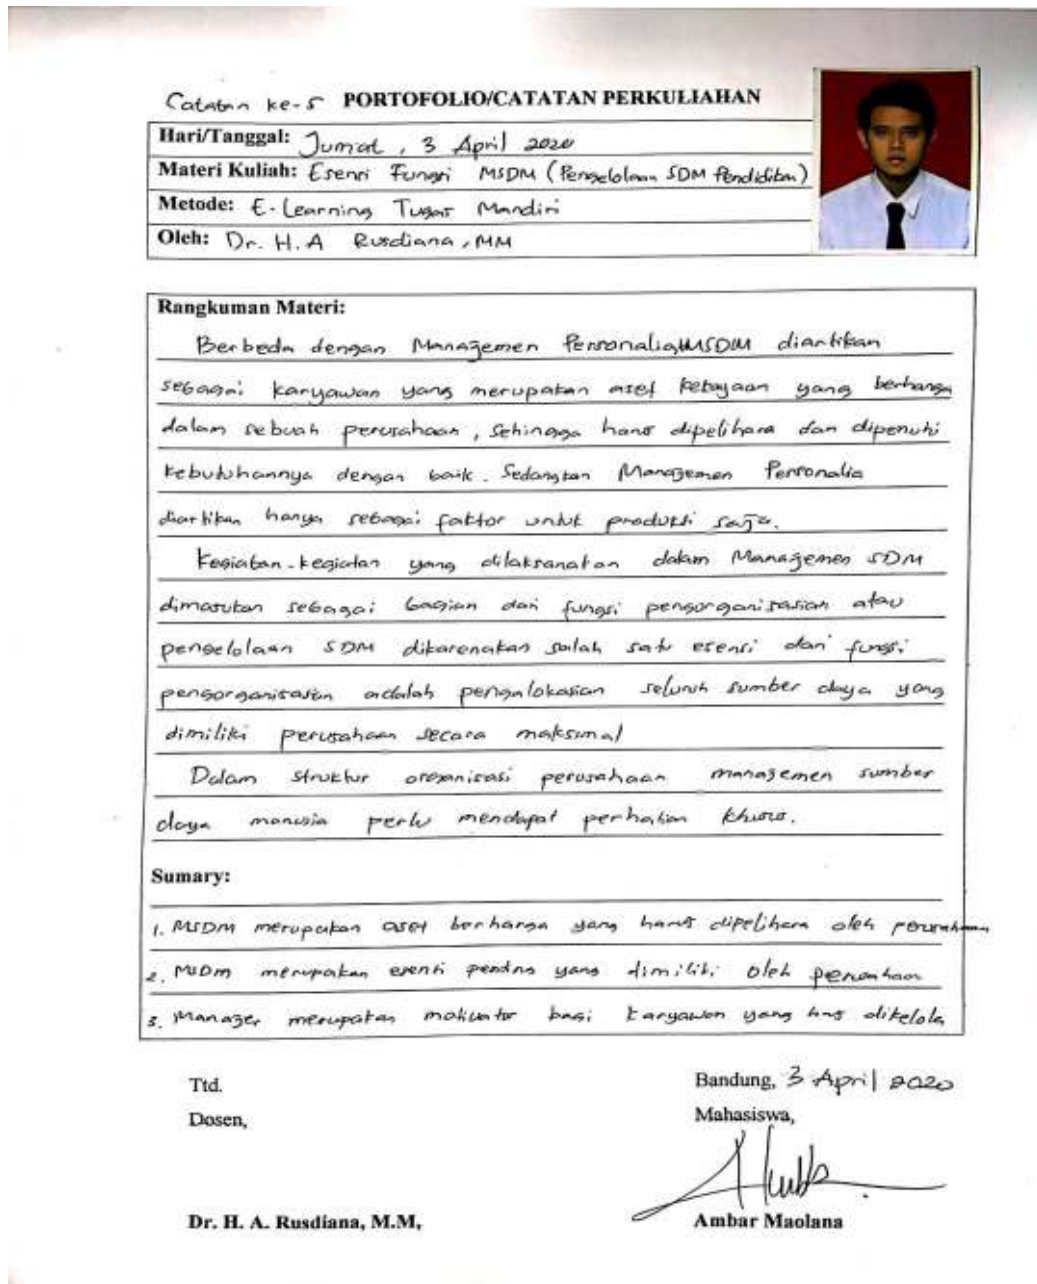 Catatan ke-5 PORTOFOLIO/CATATAN PERKULIAHAN
Hari/Tanggal: Jumat, 3 April 2020
Materi Kuliah: Esensi Fungsi MSDM (Pengelolaan SDM Pendidikan)
Metode: E-Learning Tugas Mandiri
Oleh: Dr. H. A Rusdiana, MM
Rangkuman Materi:
Berbeda dengan Manajemen Personalia, MSDM diartikan
sebagai karyawan yang merupakan aset kekayaan yang berharga
dalam sebuah perusahaan, sehingga harus dipelihara dan dipenuhi
kebutuhannya dengan baik. Sedangkan Manajemen Personalia
diartikan hanya sebagai faktor untuk produksi saja.
Kegiatan-kegiatan yang dilaksanakan dalam Manajemen SDM
dimasukan sebagai bagian dari fungsi pengorganisasian atau
pengelolaan SDM dikarenakan salah satu esensi dari fungsi
pengorganisasian adalah pengalokasian seluruh sumber daya yang
dimiliki perusahaan secara maksimal
Dalam struktur organisasi perusahaan manajemen sumber
daya manusia perlu mendapat perhatian khusus.
Sumary:
1. MSDM merupakan aset berharga yang harus dipelihara oleh perusahaan
2. MSDM merupakan esensi yang dimiliki oleh perusahaan
3. Manajer merupakan motivator bagi karyawan yang dikelola
Ttd.
Dosen,
Dr. H. A. Rusdiana, M.M,
Bandung, 3 April 2020
Mahasiswa,
Ambar Maolana